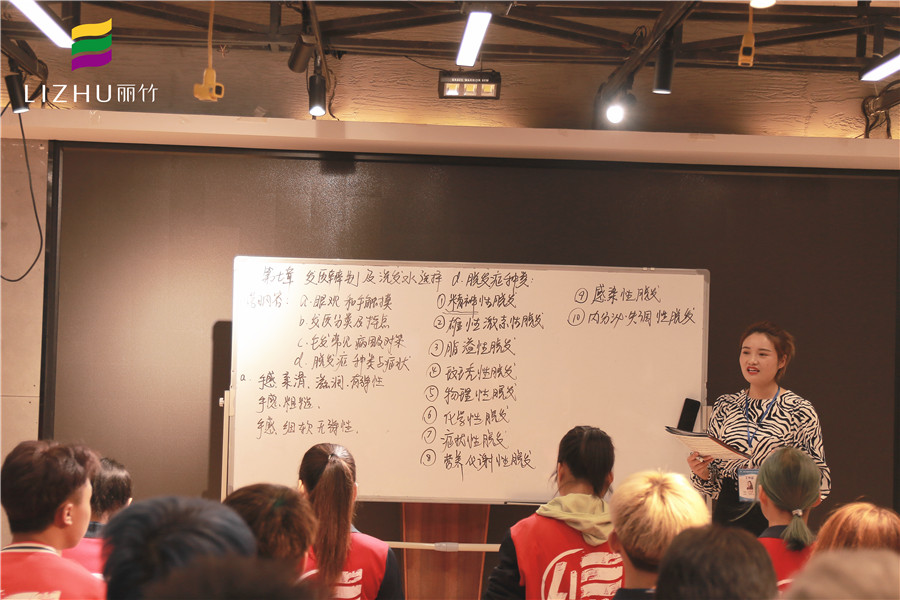 LIZHU丽竹
第七章 发质辨别及洗发水选择 d.脱发症种类:
a.眼观和手触摸
b.发质分类及特点
c.毛发常见病因及对策
d.脱发症种类与症状
a. 手感柔滑、滋润、有弹性
手感、粗糙、
手感、细软无弹性.
①精神性脱发
②雄性激素性脱发
③脂溢性脱发
④斑秃性脱发
⑤物理性脱发
⑥化学性脱发
⑦症状性脱发
⑧营养代谢性脱发
⑨感染性脱发
⑩内分泌失调性脱发